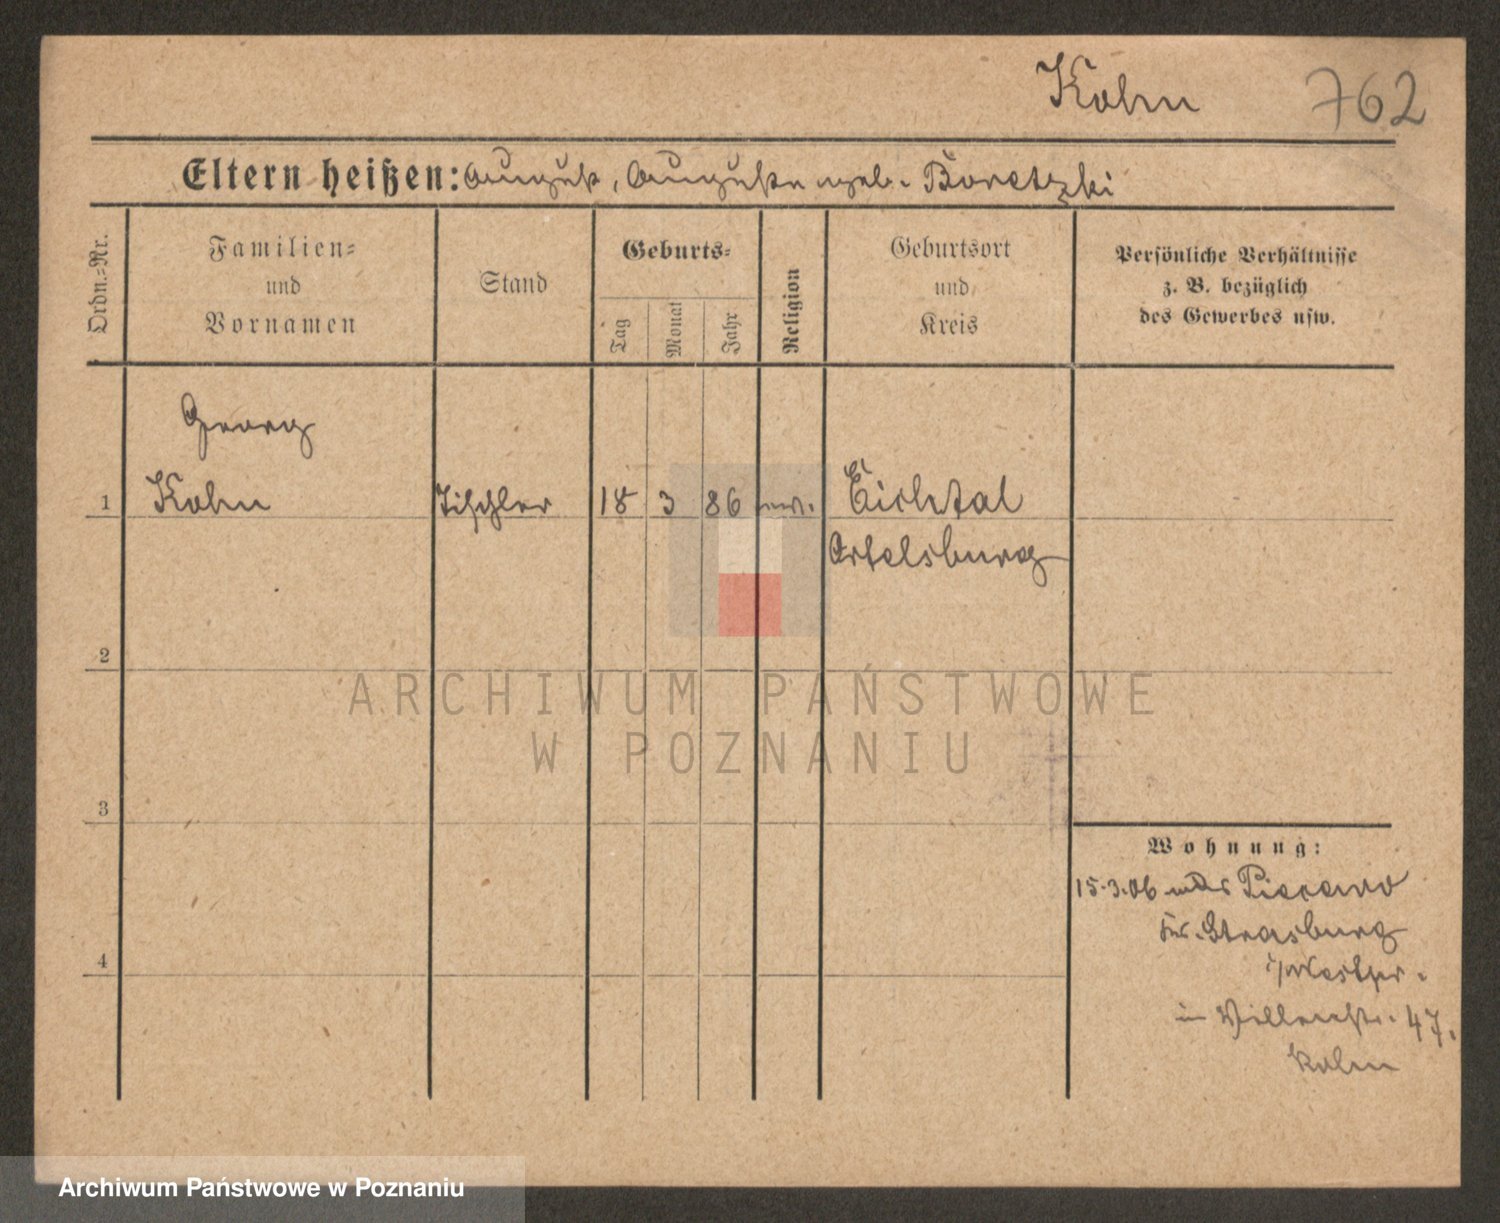 Kohn 762
Eltern heißen: August, Auguste geb. Boretzki
Ordn.-Nr.
Familien-
und
Vornamen
Stand
Geburts-
Tag
Monat
Jahr
Religion
Geburtsort
und
Kreis
Persönliche Verhältnisse
z. B. bezüglich
des Gewerbes usw.
Georg
1 Kohn Tischler 18 3 86 Eichtal
Ortelsburg
2
ARCHIWUM PAŃSTWOWE
W POZNANIU
3
Wohnung:
15.3.06
Strasburg
i/Westpr.
in 47.
Kohn
4
Archiwum Państwowe w Poznaniu